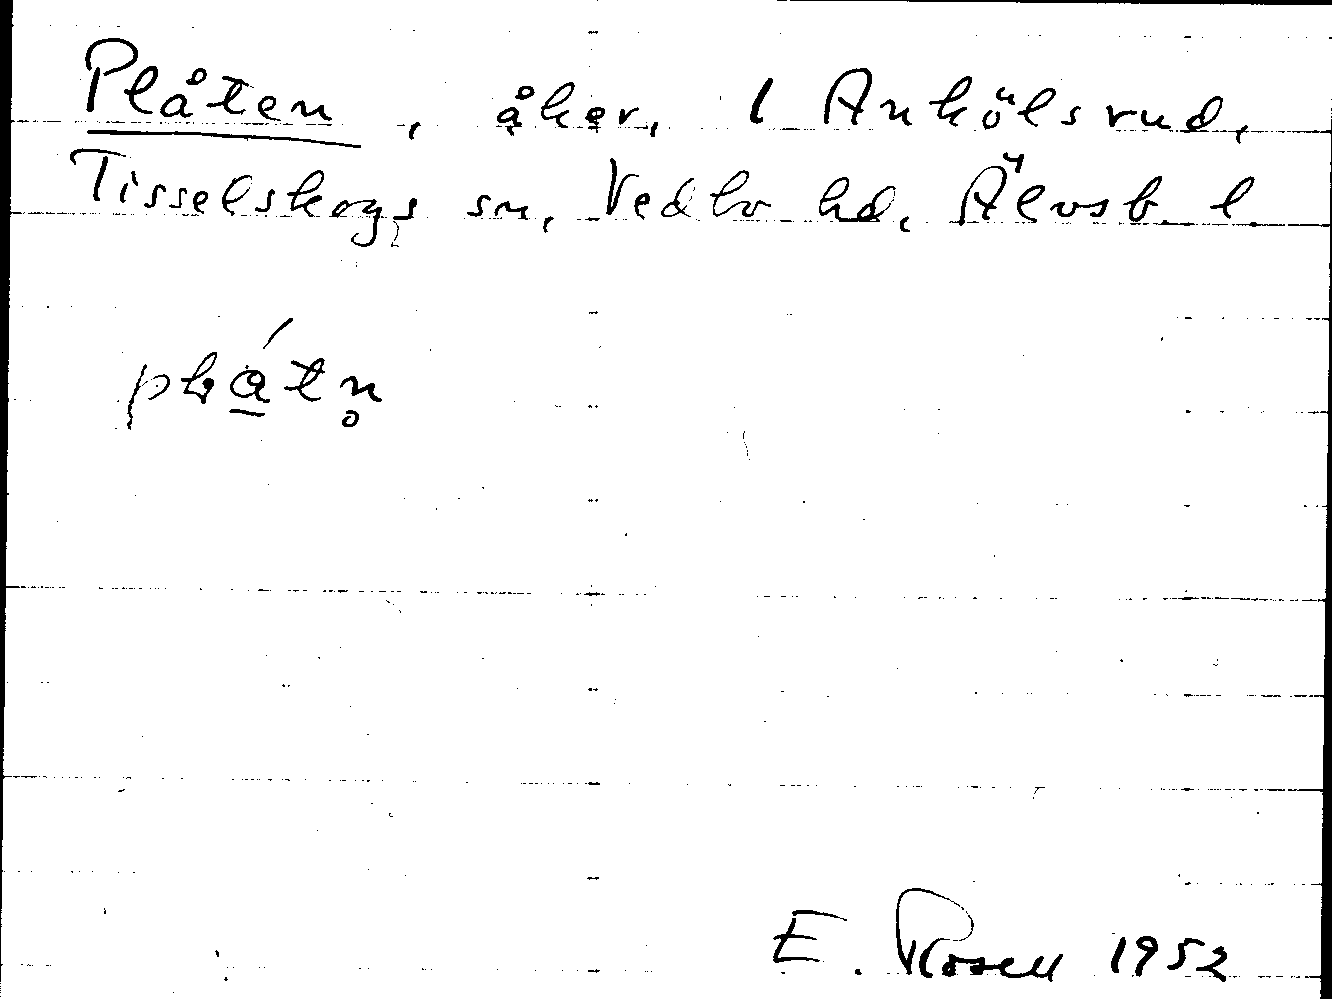 Plåten, åker, 1 Ankölsrud,
Tisselskogs sn, Vedbo hd, Älvsb. l.
E. Rosell 1952